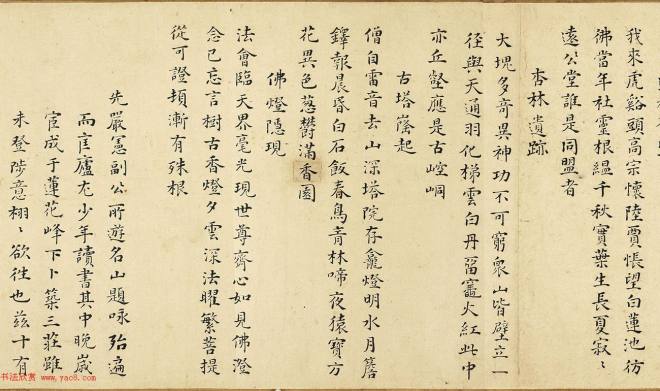 我來虎谿頭高宗懷陸賈悵望白蓮池彷
彿當年社靈根縕千秋實葉生長夏寂〻
遠公堂誰是同盟者
杏林遺跡
大塊多奇異神功不可窮衆山皆壁立一
徑與天通羽化梯雲白丹留竈火紅此中
亦丘壑應是古崆峒
古塔蔭起
僧自雷音去山深塔院存龕燈明水月簷
鐸報晨昏白石飯春鳥青林啼夜猿寶方
花異色蔥鬱滿香園
佛燈隱現
法會臨天界毫光現世尊齊心如見佛澄
念已忘言樹古香燈夕雲深法曜繁菩提
從可證頓漸有殊根
先嚴憲副公所遊名山題咏殆遍
而匡廬尤少年讀書其中晚歲
宦成于蓮花峰下卜築三莊雖
未登陟意栩〻欲往也茲十有
书法欣赏
www.yac8.com